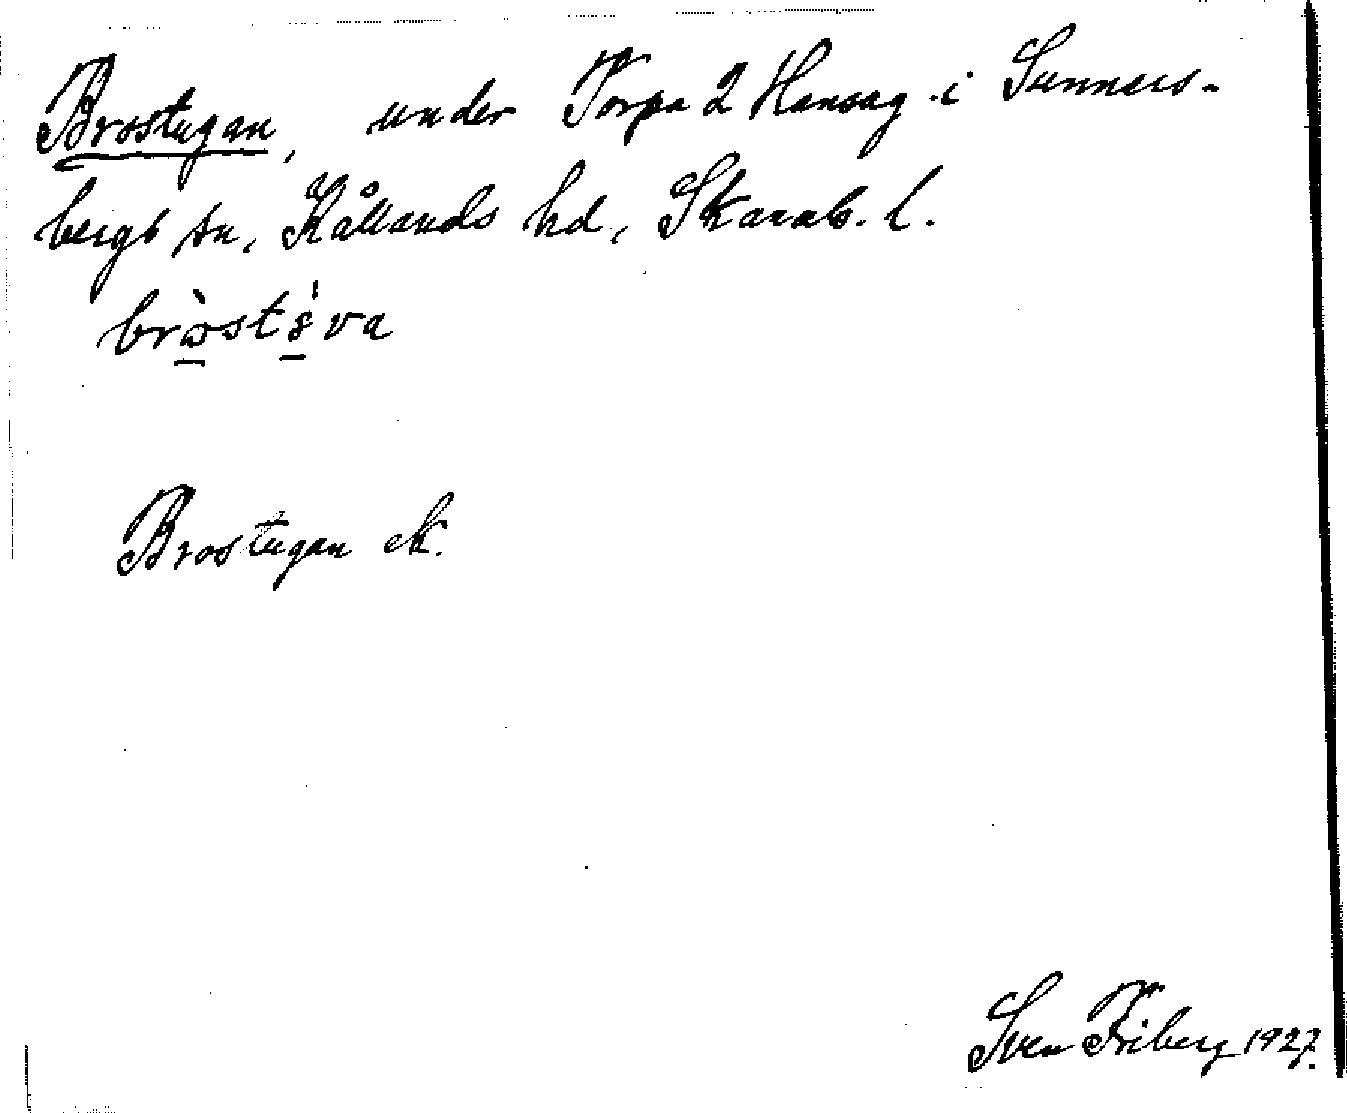 Brostugan, under Torpa 2 Hansag. i Sunners-
bergs sn, Kållands hd, Skarab. l.
bròstǿva
Brostugan ek.
Sven Friberg 1927.